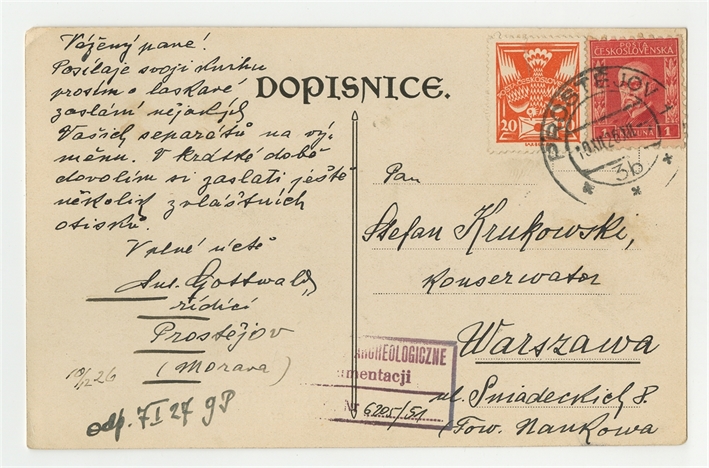 Vážený pane!
Posílaje svoji knihu
prosím o laskavé
zaslání nějakých
Vašich separátů na vý-
měnu. V krátké době
dovolím si zaslati ještě
několik zvláštních
otisků.
V plné úctě
Ant. Gottwald,
řídící
Prostějov
(Morava)
10/12 26
odp. 7 I 27 gP
DOPISNICE.
POŠTA ČESKOSLOVENSKÁ
20
POŠTA
ČESKOSLOVENSKÁ
KORUNA 1
PROSTĚJOV
3b
Pan
Stefan Krukowski,
Konserwator
Warszawa
ul. Śniadeckich 8.
Tow. Naukowa
ARCHEOLOGICZNE
mentacji
Nr 6205/51